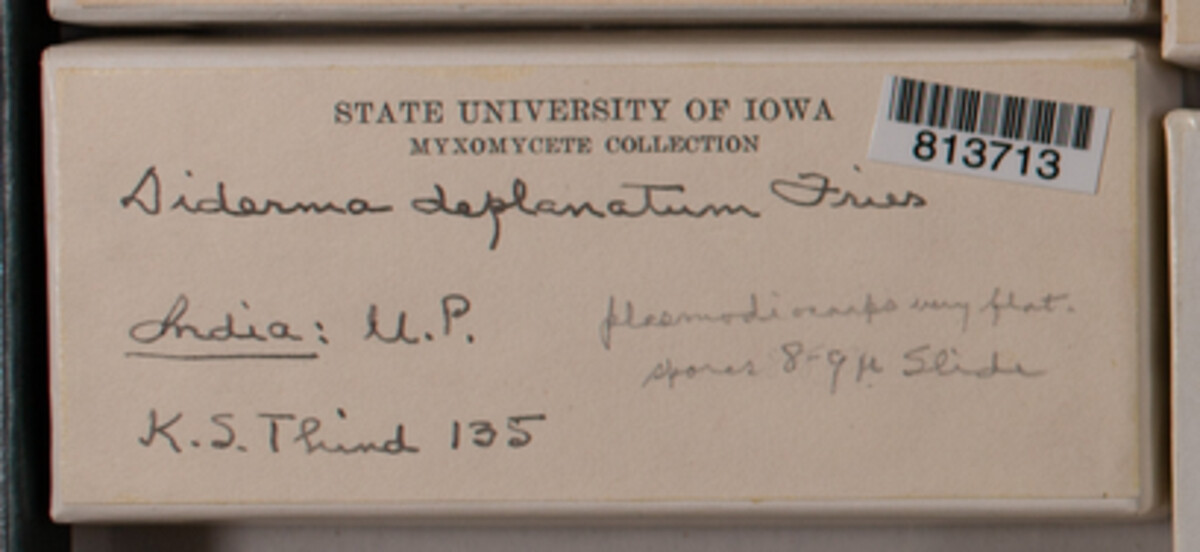 STATE UNIVERSITY OF IOWA
MYXOMYCETE COLLECTION
813713
Diderma deplanatum Fries
India: U.P.
plasmodiocarps very flat.
spores 8-9 µ Slide
K.S. Thind 135